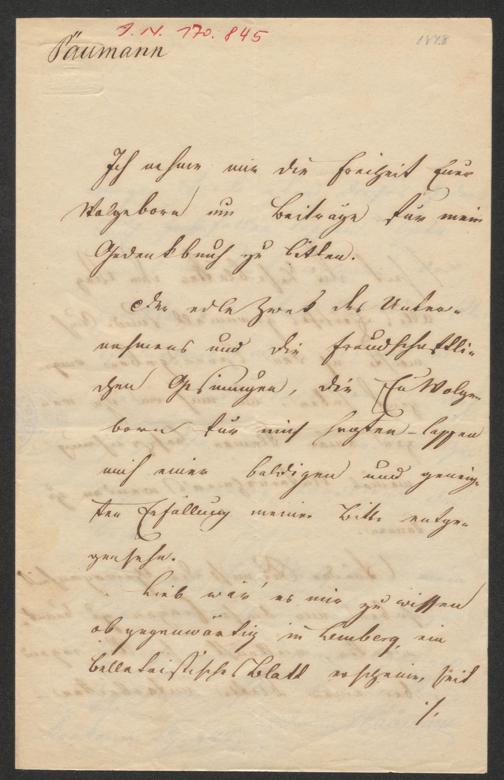 I. N. 170.845
Päumann
1848
Ich nehme mir die Freiheit Euer
Wolgeborn um Beiträge für mein
Gedenkbuch zu bitten.
Der edle Zwek des Unter-
nehmens und die freundschaftli-
chen Gesinungen, die Eu Wolge-
born für mich hegten - lassen
mich einer baldigen und geneig-
ten Erfüllung meiner Bitte entge-
gensehn.
Lieb wär' es mir zu wissen
ob gegenwärtig in Lemberg ein
Belletristisches Blatt erscheine, seit
./.